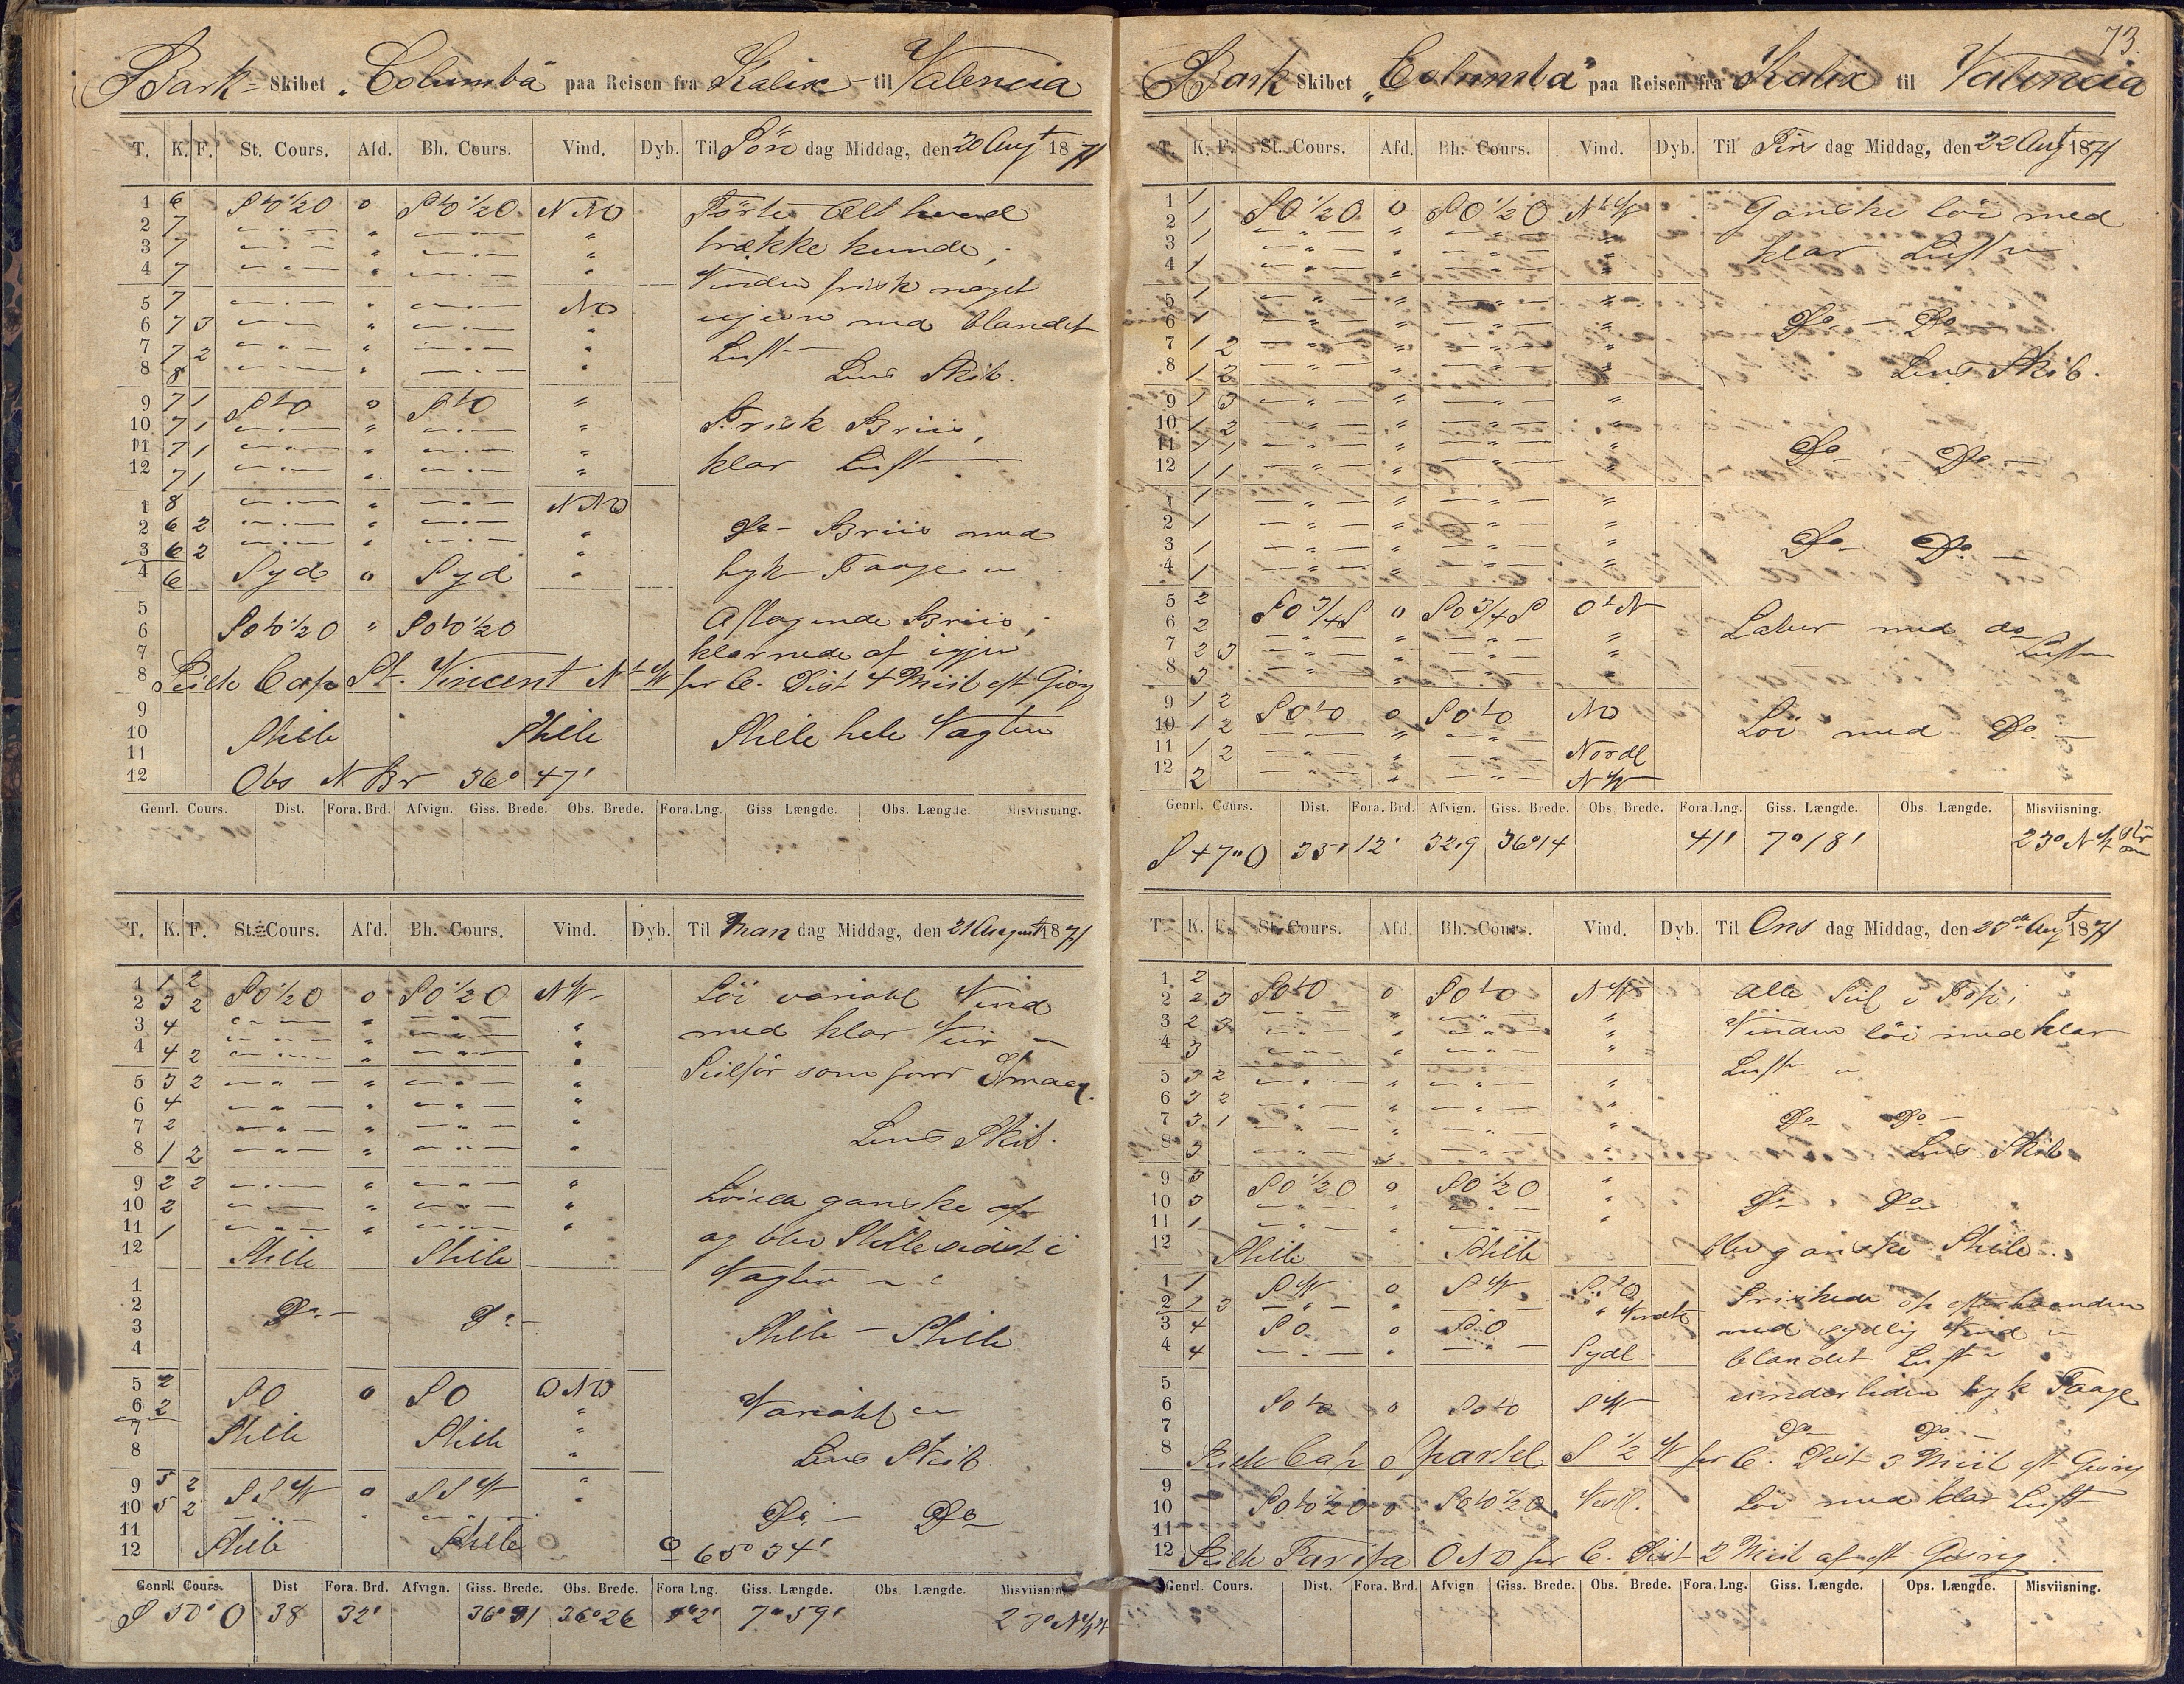 Bark Skibet "Columba" paa Reisen fra Kalix til Valencia
T. K. F. St. Cours. Afd. Bh. Cours. Vind. Dyb. Til Søn dag Middag, den 20 Augt 1871
1 6 StO½O 0 StO½O NNO Förte Alt hvad
2 7 — " — " — " — " trække kunde,
3 7 — " — " — " — "
4 7 — " — " — " — " Vinden frisk noget
5 7 — " — " — " — NO ujevn med blandet
6 7 3 — " — " — " — "
7 7 2 — " — " — " — " Luft —
8 8 — " — " — " — " Lens Skib.
9 7 1 StO 0 StO " Frisk Briis,
10 7 1 — " — " — " — "
11 7 1 — " — " — " — " klar Luft —
12 7 1 — " — " — " — "
1 8 — " — " — " — NNO
2 6 2 — " — " — " — " Do – Briis med
3 6 2 — " — " — " — "
4 6 Syd 0 Syd " tyk Taage "
5 Aftagende Briis,
6 SOtO½O " SOtO½O
7 klarnede af igjen
8 Peilte Cap St. Vincent NtW pr C. Dist 4 Miil eft Gisng
9
10 Stille Stille Stille hele Vagten
11
12 Obs N Br 36° 47'
Genrl. Cours. Dist. Fora. Brd. Afvign. Giss. Brede. Obs. Brede. Fora. Lng. Giss Længde. Obs. Længde. Misviisning.
T. K. F. St. Cours. Afd. Bh. Cours. Vind. Dyb. Til Man dag Middag, den 21 August 1871
1 1 2
2 3 2 SO½O 0 SO½O NW Löi variabl Vind
3 4 — " — " — " — " med klar Veir "
4 4 2 — " — " — " — "
5 3 2 — " — " — " — " Seilför som forr
6 4 — " — " — " — "
7 2 — " — " — " — "
8 1 2 — " — " — " — " Lens Skib.
9 2 2 — " — " — " — "
10 2 — " — " — " — " Löiede ganske af
11 1 — " — " — " — " og blev Stille sidst i
12 Stille Stille Vagten "
1
2 Do – Do –
3 Stille – Stille
4
5 2 SO 0 SO ONO
6 2 " Variabl "
7 Stille Stille "
8 " Lens Skib.
9 5 2 SSW 0 SSW "
10 5 2 — " — " — " — " Do – Do
11 Stille Stille
12 65° 34'
Genrl. Cours. Dist Fora. Brd. Afvign. Giss. Brede. Obs. Brede. Fora Lng. Giss. Længde. Obs. Længde. Misviisning
S 50° O 38 32' 36° 26 7° 59' 23° NW
73.
Bark Skibet "Columba" paa Reisen fra Kalix til Valencia
T. K. F. St. Cours. Afd. Bh. Cours. Vind. Dyb. Til Tirs dag Middag, den 22 Augt 1871
1 1
2 1 SO½O 0 SO½O NtW Ganske löi med
3 1 — " — " — " — " klar Luft "
4 1 — " — " — " — "
5 1 — " — " — " — "
6 1 — " — " — " — " Do – Do –
7 1 2 — " — " — " — "
8 1 2 — " — " — " — " Lens Skib.
9 1 3 — " — " — " — "
10 1 2 — " — " — " — "
11 1 1 — " — " — " — " Do – Do –
12 1 1 — " — " — " — "
1 1 — " — " — " — "
2 1 — " — " — " — "
3 1 — " — " — " — " Do – Do –
4 1 — " — " — " — "
5 2 SO¾S 0 SO¾S OtN
6 2 — " — " — " — " Laber med do
7 2 3 — " — " — " — " Luft
8 3 — " — " — " — "
9 1 2 SOtO 0 SOtO NO
10 1 2 — " — " — " — Löi med Do –
11 1 2 — " — " — " — Nordl
12 2 — " — " — " — NW
Genrl. Cours. Dist. Fora. Brd. Afvign. Giss. Brede. Obs. Brede. Fora. Lng. Giss. Længde. Obs. Længde. Misviisning.
S 47° O 33' 12' 32,9 36°14 41' 7° 18' 23° NW
T. K. F. St. Cours. Afd. Bh. Cours. Vind. Dyb. Til Ons dag Middag, den 23de Augt 1871
1 2
2 2 3 SOtO 0 SOtO NW Alle Seil i Top,
3 2 3 — " — " — " — " Vinden löi med klar
4 3 — " — " — " — "
5 3 2 — " — " — " — " Luft "
6 3 2 — " — " — " — "
7 3 1 — " — " — " — " Do – Do –
8 3 — " — " — " — " Lens Skib
9 3 SO½O 0 SO½O "
10 3 — " — " — " — " Do Do
11 1 — " — " — " — "
12 Stille Stille blev ganske Stille.
1 1 SW 0 SW
2 — " — " — " — Friskede op efterhaanden
3 4 SO 0 SO med sydlig Vind "
4 4 — " — " — " — Sydl. blandet Luft "
5 underliden tyk Taage
6 SOtO 0 SOtO SW
7 Do Do –
8 Peilte Cap Spartel S½W pr C. Dist 3 Miil eft Gisng
9
10 SOtO½O 0 SOtO½O Vestl. Löi med klar Luft
11
12 Peilte Tarifa ONO pr C. Dist 2 Miil af eft Gisng.
Genrl. Cours. Dist. Fora. Brd. Afvign Giss. Brede. Obs. Brede. Fora. Lng. Giss. Længde. Ops. Længde. Misviisning.